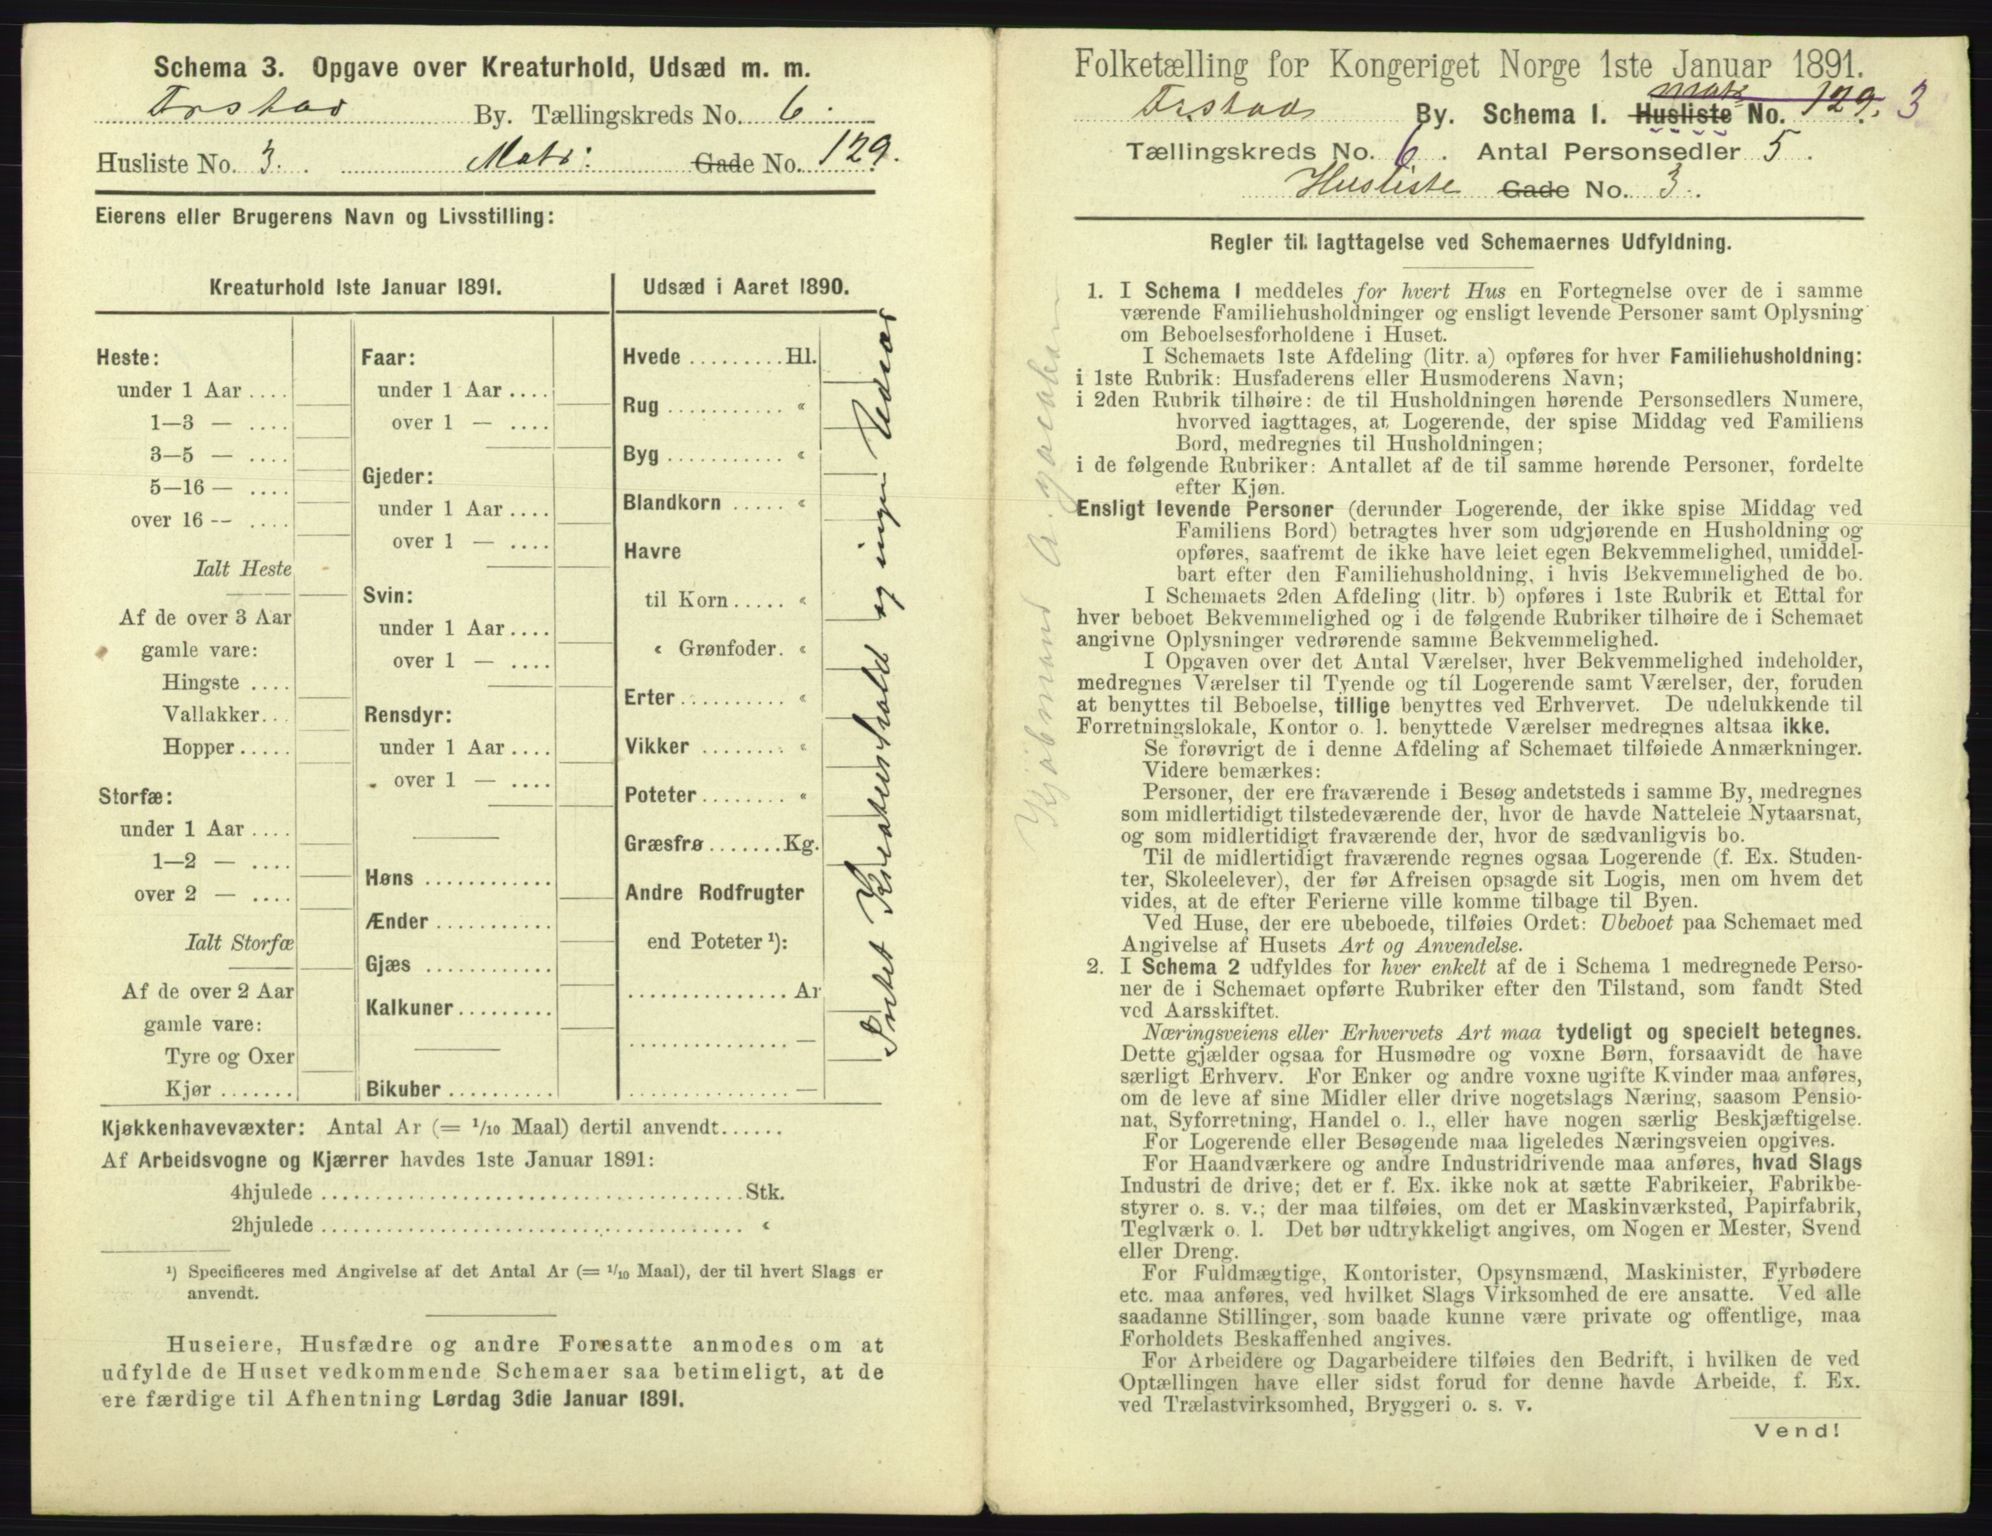 Schema 3. Opgave over Kreaturhold, Udsæd m. m.
Frstad By. Tællingskreds No. 6.
Husliste No. 3. Matr: Gade No. 129.
Eierens eller Brugerens Navn og Livsstilling:
Kreaturhold 1ste Januar 1891.
Heste:
under 1 Aar ....
1—3 — ....
3—5 — ....
5—16 — ....
over 16 -- ....
Ialt Heste
Af de over 3 Aar
gamle vare:
Hingste ....
Vallakker...
Hopper.....
Storfæ:
under 1 Aar ....
1—2 — ....
over 2 — ....
Ialt Storfæ
Af de over 2 Aar
gamle vare:
Tyre og Oxer
Kjør .......
Faar:
under 1 Aar ....
over 1 — ....
Gjeder:
under 1 Aar ....
over 1 — ....
Svin:
under 1 Aar ....
over 1 — ....
Rensdyr:
under 1 Aar ....
over 1 — ....
Høns ............
Ænder ...........
Gjæs ............
Kalkuner.........
Bikuber..........
Udsæd i Aaret 1890.
Hvede .........Hl.
Rug ........... «
Byg ........... «
Blandkorn ..... «
Havre
til Korn..... «
« Grønfoder. «
Erter ......... «
Vikker ........ «
Poteter........ «
Græsfrø.......Kg.
Andre Rodfrugter
end Poteter ¹):
...............Ar
............... —
............... —
Intet Kreaturhold og ingen Udsæd
Kjøkkenhavevæxter: Antal Ar (= 1/10 Maal) dertil anvendt......
Af Arbeidsvogne og Kjærrer havdes 1ste Januar 1891:
4hjulede ......................................Stk.
2hjulede ...................................... «
¹) Specificeres med Angivelse af det Antal Ar (= 1/10 Maal), der til hvert Slags er
anvendt.
Huseiere, Husfædre og andre Foresatte anmodes om at
udfylde de Huset vedkommende Schemaer saa betimeligt, at de
ere færdige til Afhentning Lørdag 3die Januar 1891.
Folketælling for Kongeriget Norge 1ste Januar 1891.
Matr
Frstad By. Schema 1. Husliste No. 129. 3
Tællingskreds No. 6. Antal Personsedler 5.
Husliste Gade No. 3.
Regler til Iagttagelse ved Schemaernes Udfyldning.
1. I Schema 1 meddeles for hvert Hus en Fortegnelse over de i samme
værende Familiehusholdninger og ensligt levende Personer samt Oplysning
om Beboelsesforholdene i Huset.
I Schemaets 1ste Afdeling (litr. a) opføres for hver Familiehusholdning:
i 1ste Rubrik: Husfaderens eller Husmoderens Navn;
i 2den Rubrik tilhøire: de til Husholdningen hørende Personsedlers Numere,
hvorved iagttages, at Logerende, der spise Middag ved Familiens
Bord, medregnes til Husholdningen;
i de følgende Rubriker: Antallet af de til samme hørende Personer, fordelte
efter Kjøn.
Ensligt levende Personer (derunder Logerende, der ikke spise Middag ved
Familiens Bord) betragtes hver som udgjørende en Husholdning og
opføres, saafremt de ikke have leiet egen Bekvemmelighed, umiddel-
bart efter den Familiehusholdning, i hvis Bekvemmelighed de bo.
I Schemaets 2den Afdeling (litr. b) opføres i 1ste Rubrik et Ettal for
hver beboet Bekvemmelighed og i de følgende Rubriker tilhøire de i Schemaet
angivne Oplysninger vedrørende samme Bekvemmelighed.
I Opgaven over det Antal Værelser, hver Bekvemmelighed indeholder,
medregnes Værelser til Tyende og til Logerende samt Værelser, der, foruden
at benyttes til Beboelse, tillige benyttes ved Erhvervet. De udelukkende til
Forretningslokale, Kontor o. l. benyttede Værelser medregnes altsaa ikke.
Se forøvrigt de i denne Afdeling af Schemaet tilføiede Anmærkninger.
Videre bemærkes:
Personer, der ere fraværende i Besøg andetsteds i samme By, medregnes
som midlertidigt tilstedeværende der, hvor de havde Natteleie Nytaarsnat,
og som midlertidigt fraværende der, hvor de sædvanligvis bo.
Til de midlertidigt fraværende regnes ogsaa Logerende (f. Ex. Studen-
ter, Skoleelever), der før Afreisen opsagde sit Logis, men om hvem det
vides, at de efter Ferierne ville komme tilbage til Byen.
Ved Huse, der ere ubeboede, tilføies Ordet: Ubeboet paa Schemaet med
Angivelse af Husets Art og Anvendelse.
2. I Schema 2 udfyldes for hver enkelt af de i Schema 1 medregnede Perso-
ner de i Schemaet opførte Rubriker efter den Tilstand, som fandt Sted
ved Aarsskiftet.
Næringsveiens eller Erhvervets Art maa tydeligt og specielt betegnes.
Dette gjælder ogsaa for Husmødre og voxne Børn, forsaavidt de have
særligt Erhverv. For Enker og andre voxne ugifte Kvinder maa anføres,
om de leve af sine Midler eller drive nogetslags Næring, saasom Pensio-
nat, Syforretning, Handel o. l., eller have nogen særlig Beskjæftigelse.
For Logerende eller Besøgende maa ligeledes Næringsveien opgives.
For Haandværkere og andre Industridrivende maa anføres, hvad Slags
Industri de drive; det er f. Ex. ikke nok at sætte Fabrikeier, Fabrikbe-
styrer o. s. v.; der maa tilføies, om det er Maskinværksted, Papirfabrik,
Teglværk o. l. Det bør udtrykkeligt angives, om Nogen er Mester, Svend
eller Dreng.
For Fuldmægtige, Kontorister, Opsynsmænd, Maskinister, Fyrbødere
etc. maa anføres, ved hvilket Slags Virksomhed de ere ansatte. Ved alle
saadanne Stillinger, som baade kunne være private og offentlige, maa
Forholdets Beskaffenhed angives.
For Arbeidere og Dagarbeidere tilføies den Bedrift, i hvilken de ved
Optællingen have eller sidst forud for denne havde Arbeide, f. Ex.
ved Trælastvirksomhed, Bryggeri o. s. v.
Vend!
Kjøbmand A. Jacobsen